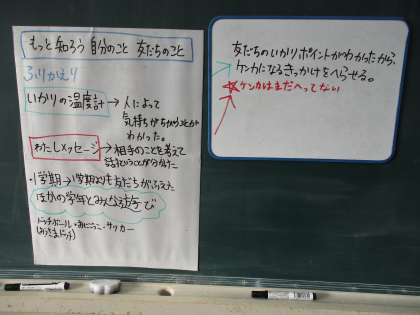 もっと知ろう 自分のこと 友だちのこと
ふりかえり
いかりの温度計 → 人によって
気持ちがちがうことが
わかった。
わたしメッセージ → 相手のことを考えて
話すということが分かった
・1学期→1学期よりも友だちがふえた
ほかの学年とみんなで遊び
ドッチボール・おにごっこ・サッカー
友だちのいかりポイントがわかったから、
ケンカになるきっかけをへらせる。
☆ケンカはまだへってない